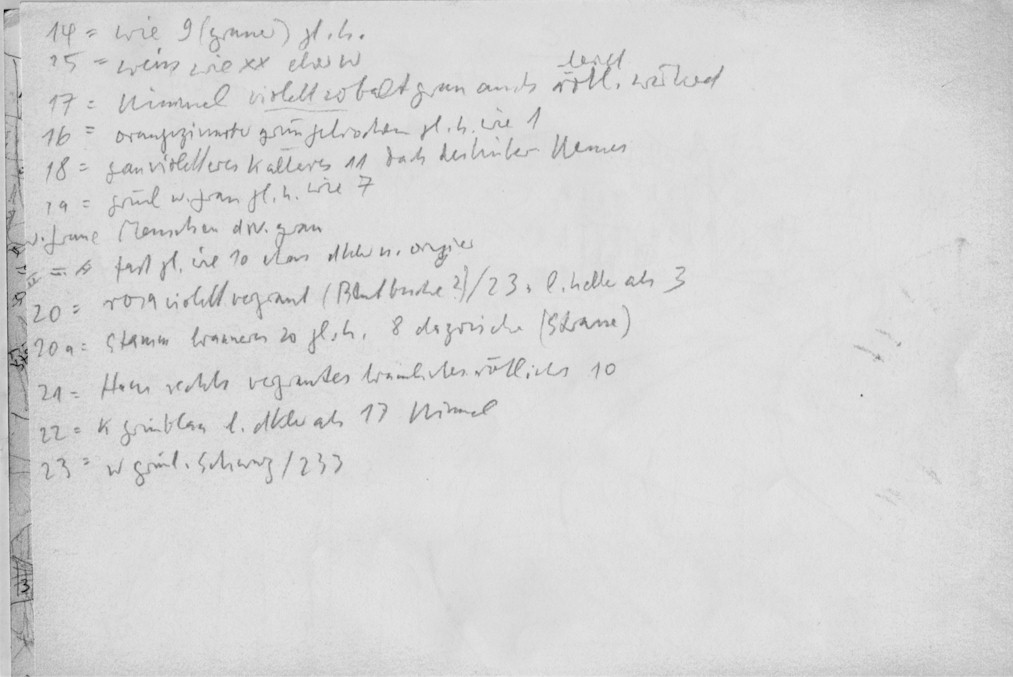 14 = wie 9 (grauer) gl. h.
15 = weiss wie xx etwas w
17 = Himmel violett kobaltgrau auch leicht rötl. wirkend
16 = orangezinnober grün gebrochen gl. h. wie 1
18 = grauvioletteres kälteres 11 Dach des linken Hauses
19 = grünl w. grau gl. h. wie 7
w. graue Menschen div. grau
= fast gl. wie 10 etwas dkler u.
20 = rosa violett vergraut (Blutbuche 2) / 23. l. heller als 3
20a = Stamm brauneres 20 gl. h. 8 dazwischen (Strasse)
21 = Haus rechts vergrautes bräunliches rötliches 10
22 = K grünblau l. dkler als 17 Himmel
23 = w grünl. Schwarz / 233